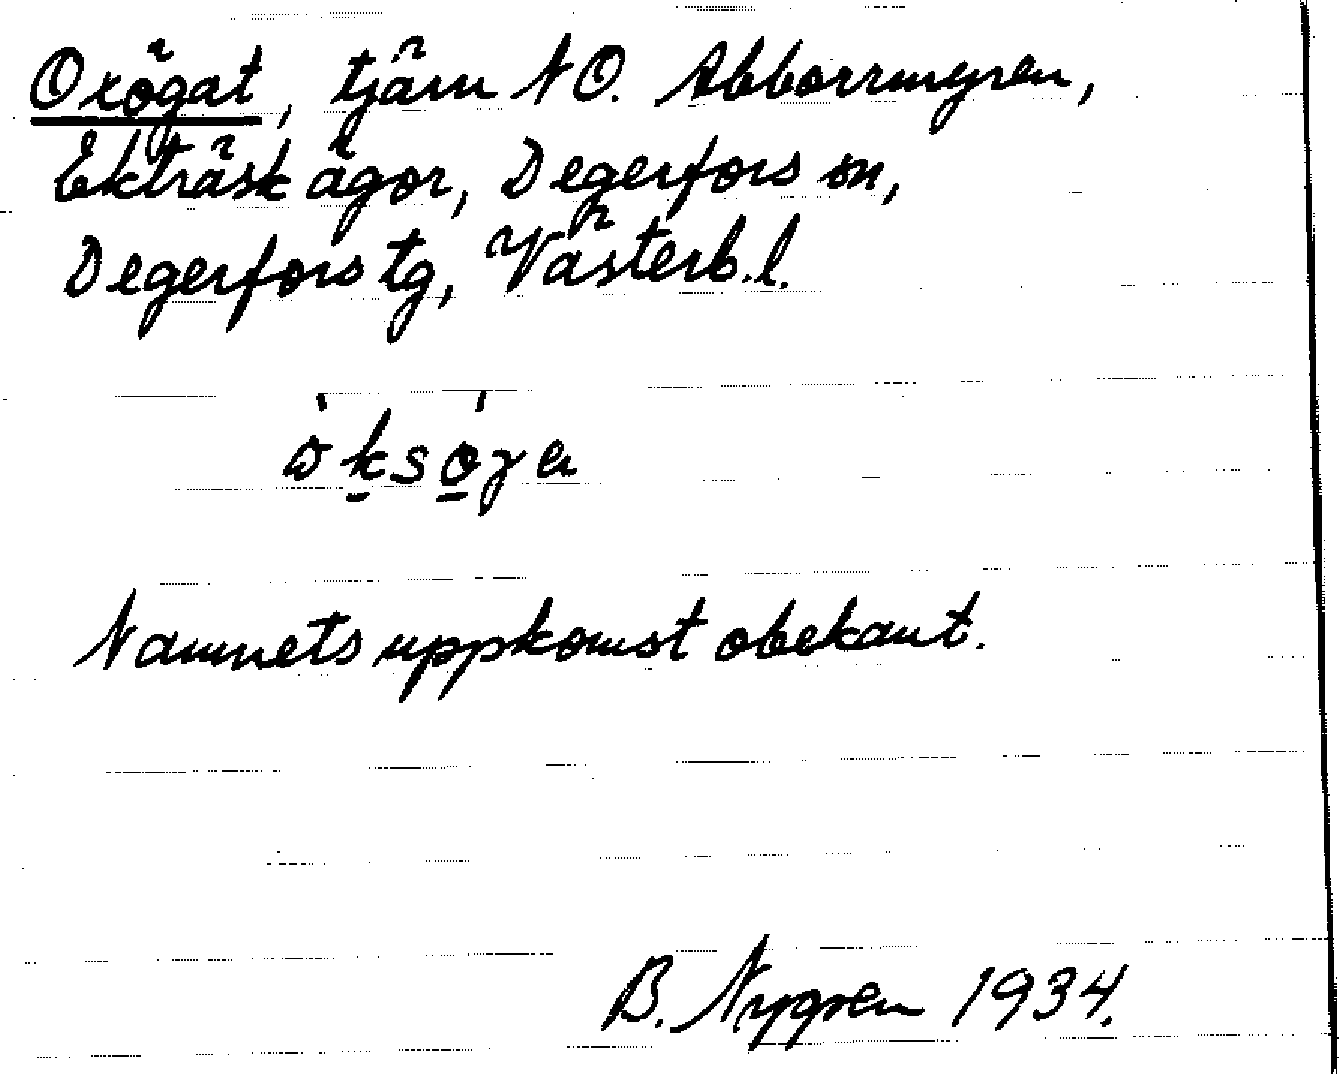 Oxögat, tjärn NO. Abborrmyren,
Ekträsk ägor, Degerfors sn,
Degerfors tg, Västerb. l.
Namnets uppkomst obekant.
B. Nygren 1934.